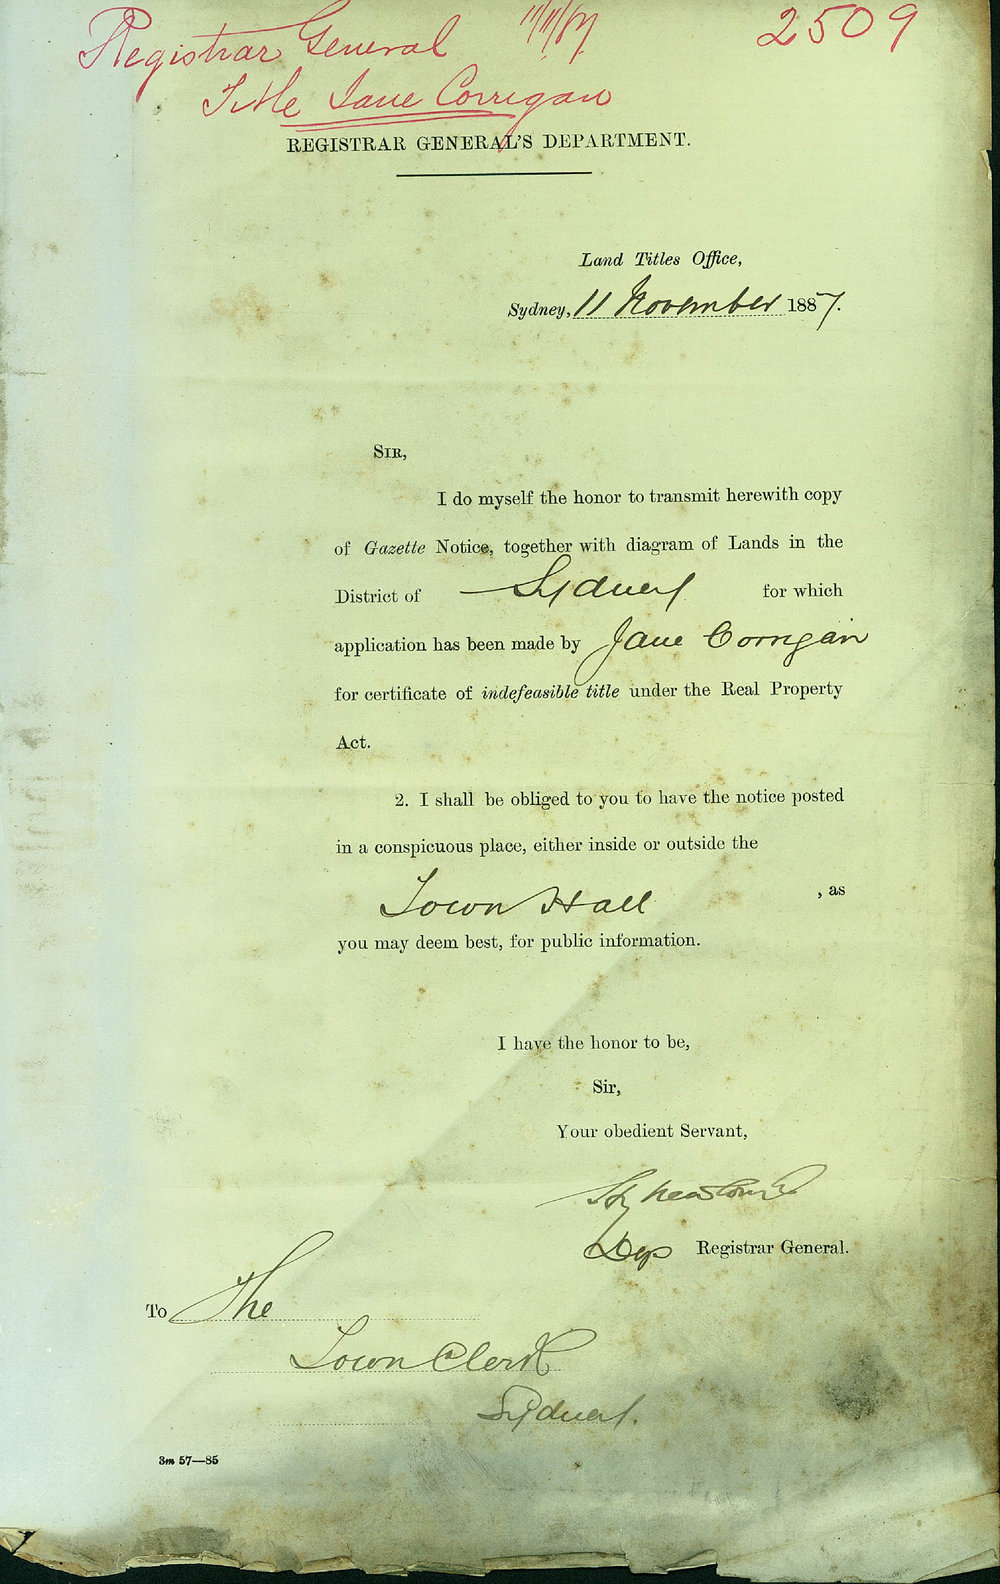 Registrar General 11/11/87 2509
Title Jane Corrigan
REGISTRAR GENERAL'S DEPARTMENT.
Land Titles Office,
Sydney, 11 November 1887.
SIR,
I do myself the honor to transmit herewith copy
of Gazette Notice, together with diagram of Lands in the
District of Sydney for which
application has been made by Jane Corrigan
for certificate of indefeasible title under the Real Property
Act.
2. I shall be obliged to you to have the notice posted
in a conspicuous place, either inside or outside the
Town Hall , as
you may deem best, for public information.
I have the honor to be,
Sir,
Your obedient Servant,
Dep Registrar General.
To The
Town Clerk
Sydney.
3m 57—85